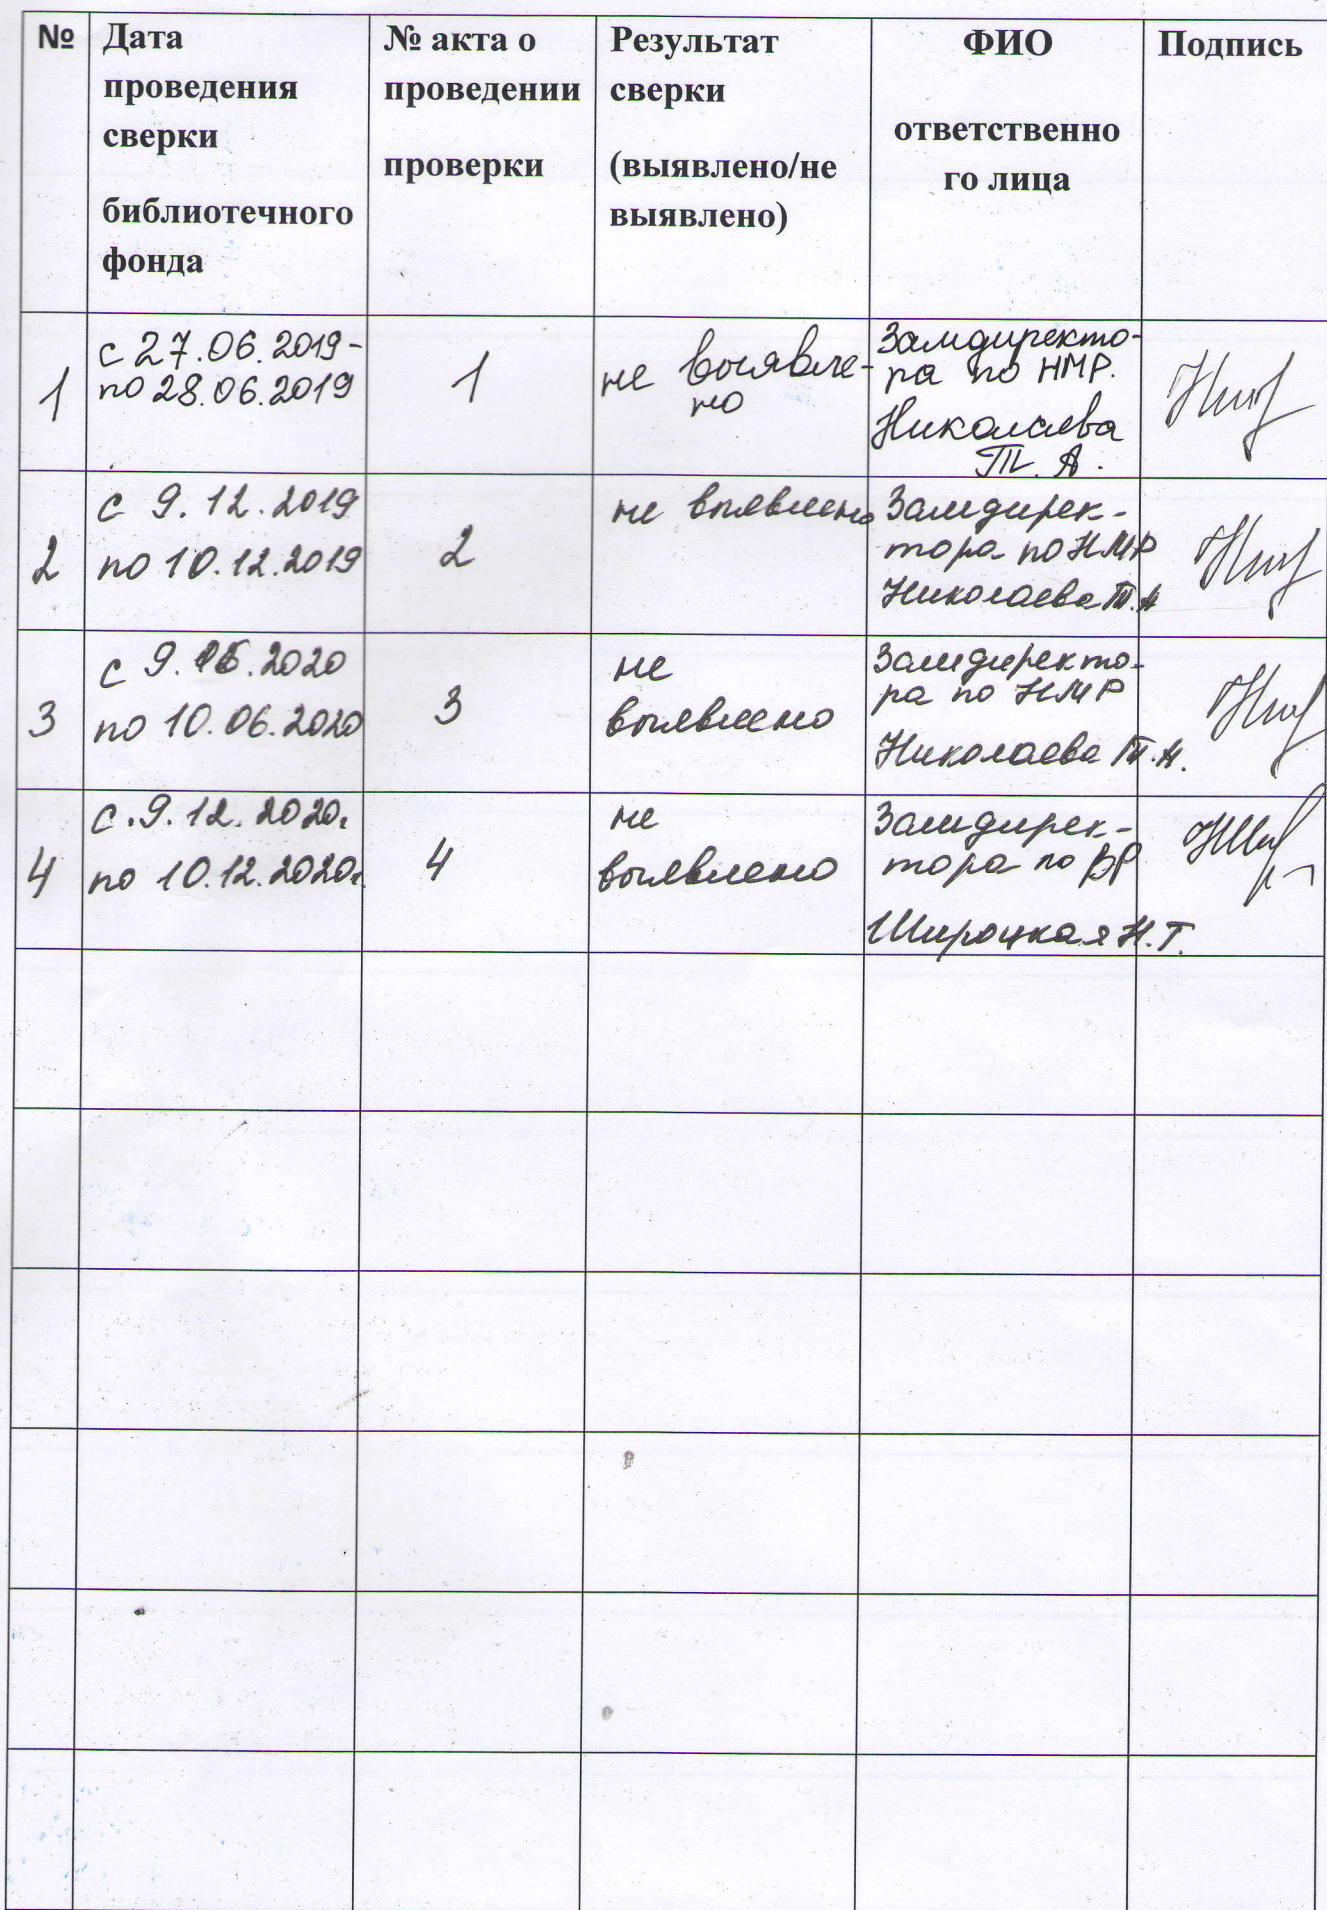 №
Дата
проведения
сверки
библиотечного
фонда
№ акта о
проведении
проверки
Результат
сверки
(выявлено/не
выявлено)
ФИО
ответственно
го лица
Подпись
1
с 27.06.2019-
по 28.06.2019
1
не выявле-
но
Замдиректо-
ра по НМР.
Николаева
Т. А.
2
с 9.12.2019
по 10.12.2019
2
не выявлено
Замдирек-
тора по НМР
Николаева Т.А
3
с 9. .2020
по 10.06.2020
3
не
выявлено
Замдиректо-
ра по НМР
Николаева Т.А.
4
с.9.12.2020г
по 10.12.2020г.
4
не
выявлено
Замдирек-
тора по ВР
Широцкая Н.Г.